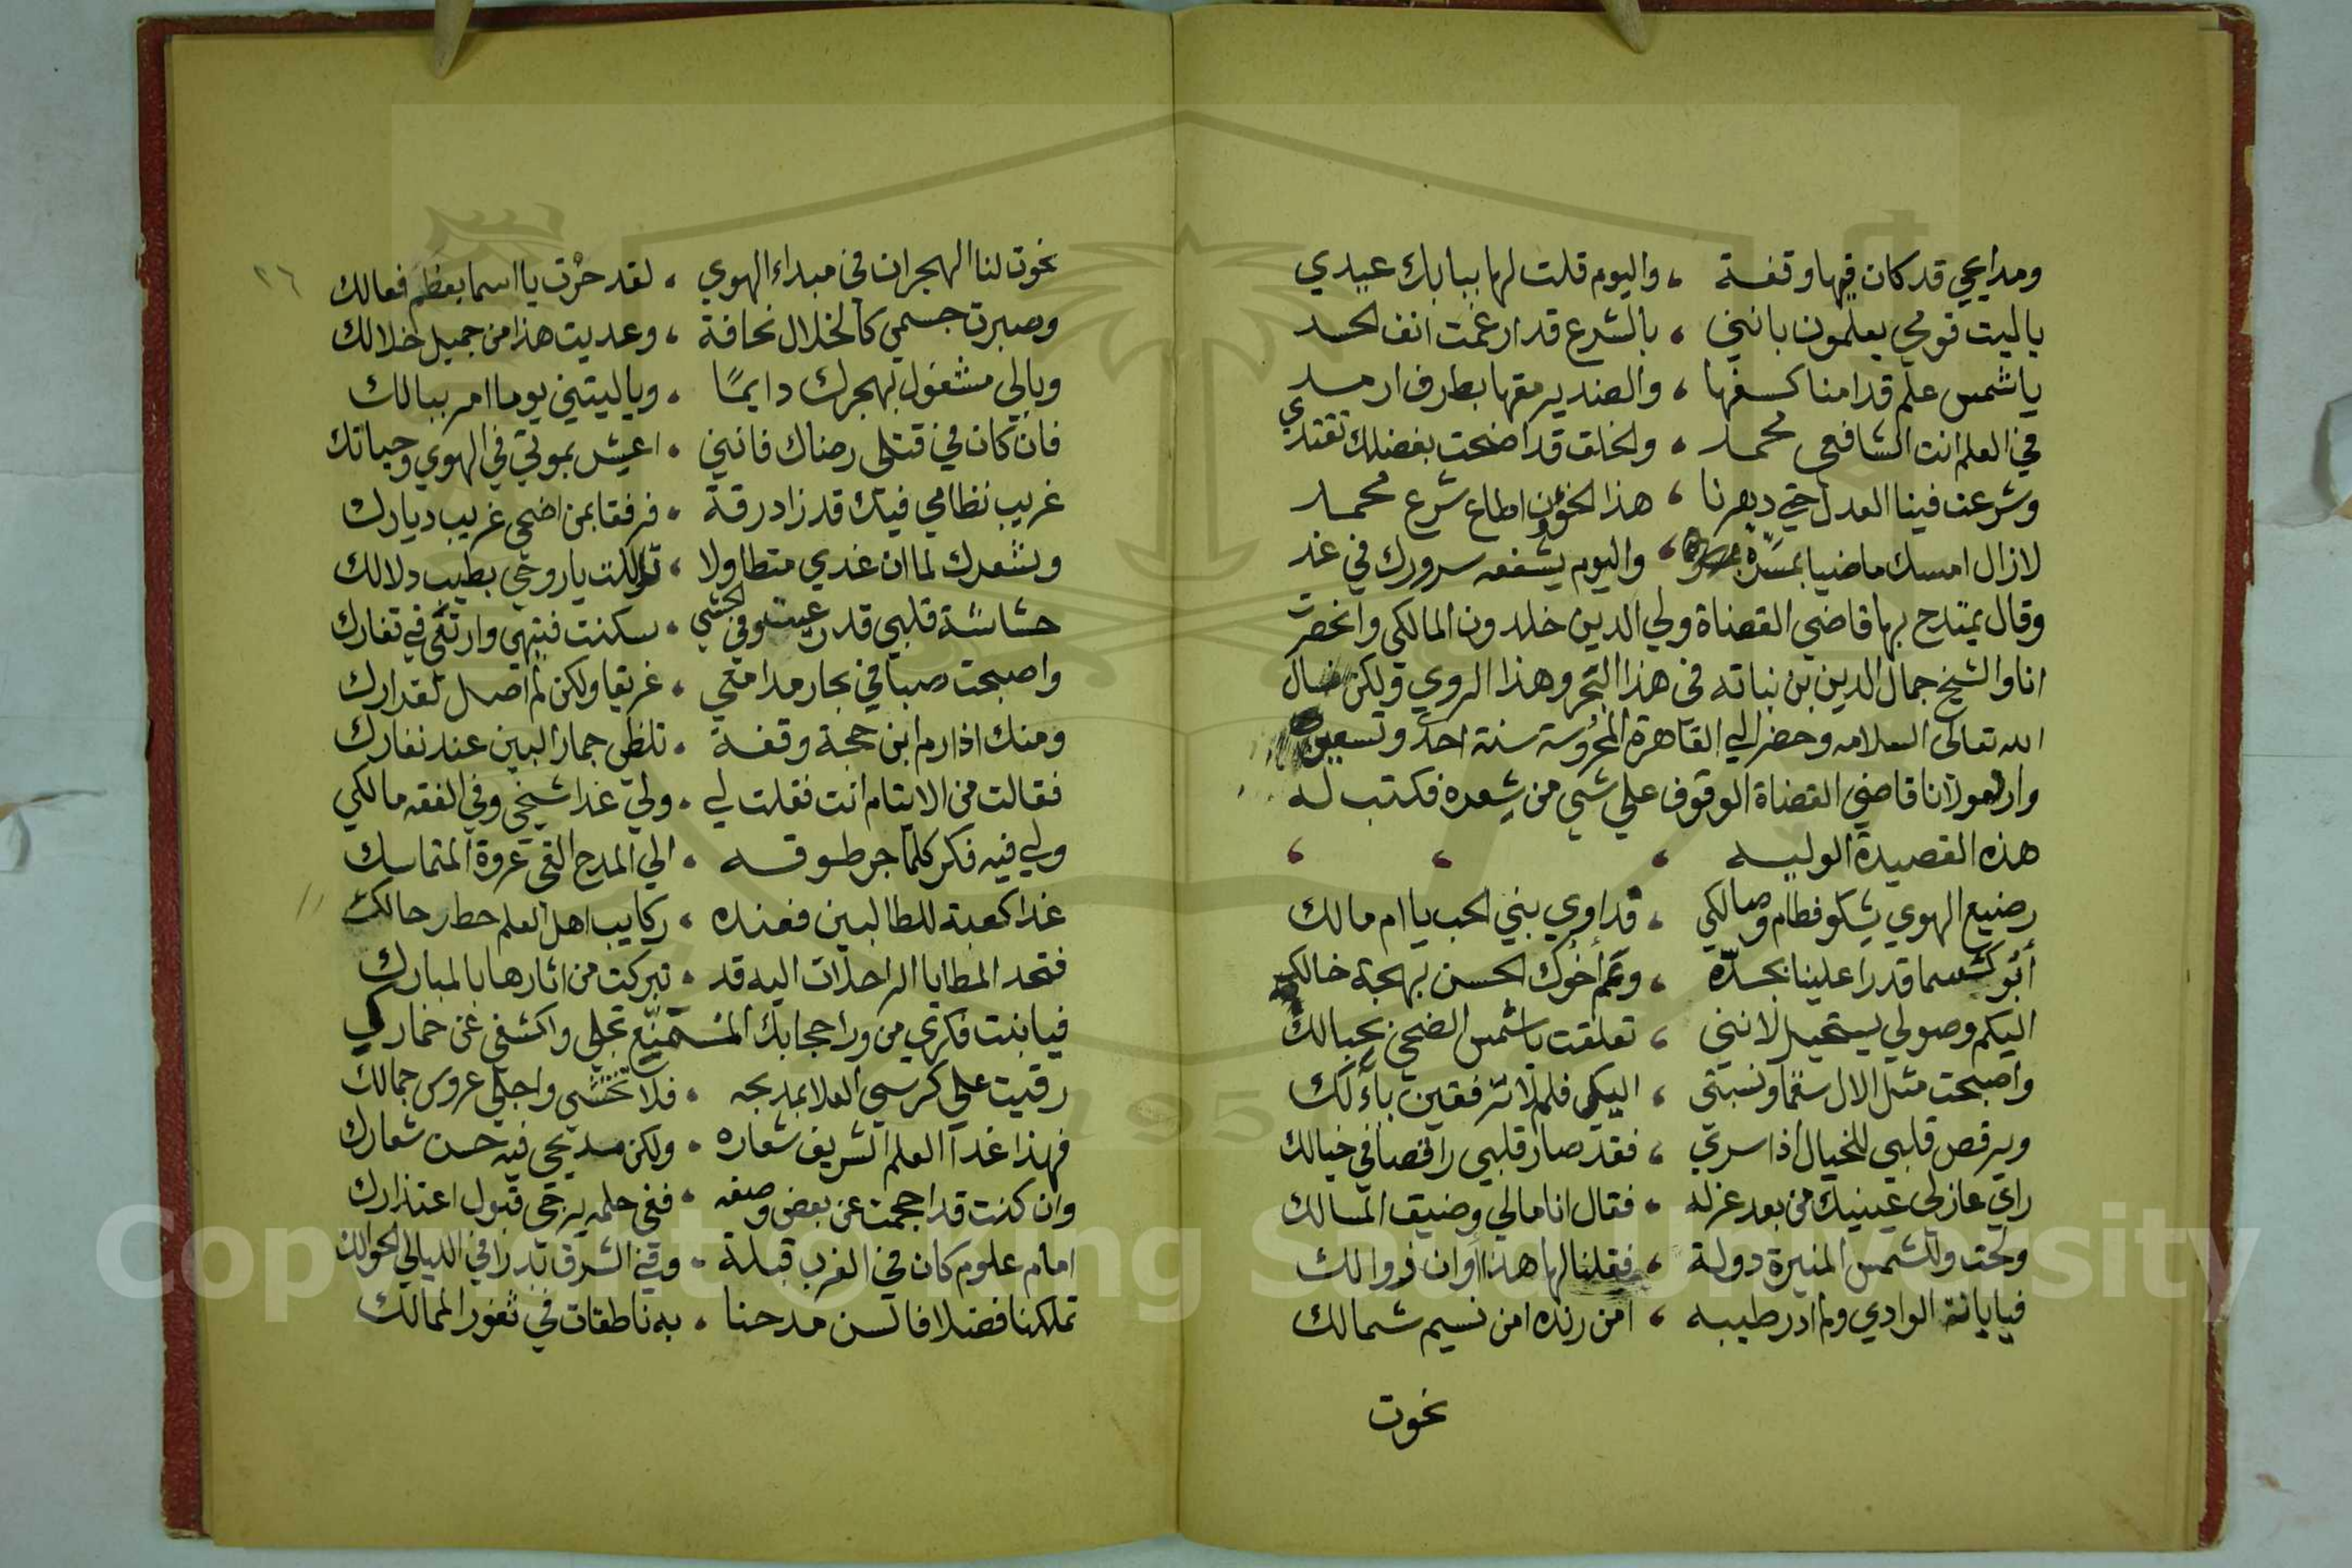 ومدايحي قد كان فيها وقفة ، واليوم قلت لها ببابك عبيدي
ياليت قومي يعلمون بانني ، بالشرع قد ارغمت انف الحسد
يا شمس علم قد امنا كسفها ، والضد يرمقها بطرف ارمد
في العلم انت الشافعي محمد ، والخلق قد اضحت بفضلك تقتدي
وشرعت فينا العدل حتي دهرنا ، هذا الخؤن اطاع شرع محمد
لازال امسك ماضيا بمسرة ، واليوم يشفعه سرورك في غد
وقال يمتدح بها قاضي القضاة ولي الدين خلدون المالكي وانحصرت
انا والشيخ جمال الدين بن نباته في هذا البحر وهذا الروي ولكن
الله تعالى السلامه وحضر الي القاهرة المحروسة سنة احد وتسعين
مولانا قاضي القضاة الوقوف علي شي من شعره فكتب له
هذه القصيدة الوليه ، ، ،
رضيع الهوي يشكو فطام وصالكي ، فداوي بني الحب يا ام مالك
سما قدرا علينا بجده ، وتم أخوك الحسن بهجة خالك
اليكم وصولي يستحيل لانني ، تعلقت يا شمس الضحى بحبالك
واصبحت مثل الال سقما ونسبتي ، اليكي فلم لا ترفقين بآلك
ويرقص قلبي للخيال اذا سري ، فقد صار قلبي راقصا في خيالك
راي عازلي عينيك من بعد عزله ، فقال انا مالي وضيق المسالك
ولحت وللشمس المنيرة دولة ، فقلنا لها هذا اوان زوالك
فيا بانة الوادي ولم ادر طيبه ، امن رنده امن نسيم شمالك
نحوت
٢٦
نحوت لنا الهجران في مبداء الهوي ، لقد حزت يا اسما بعظم فعالك
وصيرت جسمي كالخلال نحافة ، وعديت هذا من جميل خلالك
وبالي مشغول بهجرك دايمًا ، وياليتني يوما امر ببالك
فان كان في قتلى رضاك فانني ، اعيش بموتي في الهوي وحياتك
غريب نظامي فيك قد زاد رقة ، فرفقا بمن اضحى غريب ديارك
وشعرك لما ان غدي متطاولا ، تملكت يا روحي بطيب دلالك
حشاشة قلبي قد رعيت وفي الحشي ، سكنت فتيهي وارتعي في تفارك
واصبحت صبا في بحار مدامعي ، غريقا ولكن لم اصل لقدارك
ومنك اذا رم ابن حجة وقفة ، تلظى جمار البين عند نفارك
فقالت من الايتام انت فقلت لي ، ولي غدا شيخي وفي الفقه مالكي
ولي فيه فكر كلما جر طوقه ، الي المدح القى عروة المتماسك
غدا كعبة للطالبين فعنده ، ركايب اهل العلم حط رحالك
فتحد المطايا الراحلات اليه قد ، تبركت من اثارها بالمبارك
فيا بنت فكري من ورا حجابك المتمنع تجلى واكشفي عن خمارك
رقيت علي كرسي العلا بمديحه ، فلا تخشي واجلي عروس جمالك
فهذا غدا العلم الشريف شعاره ، ولكن مديحي فيه حسن شعارك
وان كنت قد احجمت عن بعض وصفه ، ففي حلمه يرتجى قبول اعتذارك
امام علوم كان في الغرب قبلة ، وفي الشرق بدرا في الليالي الحوالك
تملكنا فضلا فالسن مدحنا ، به ناطقات في ثغور الممالك
Copyright © King Saud University
195